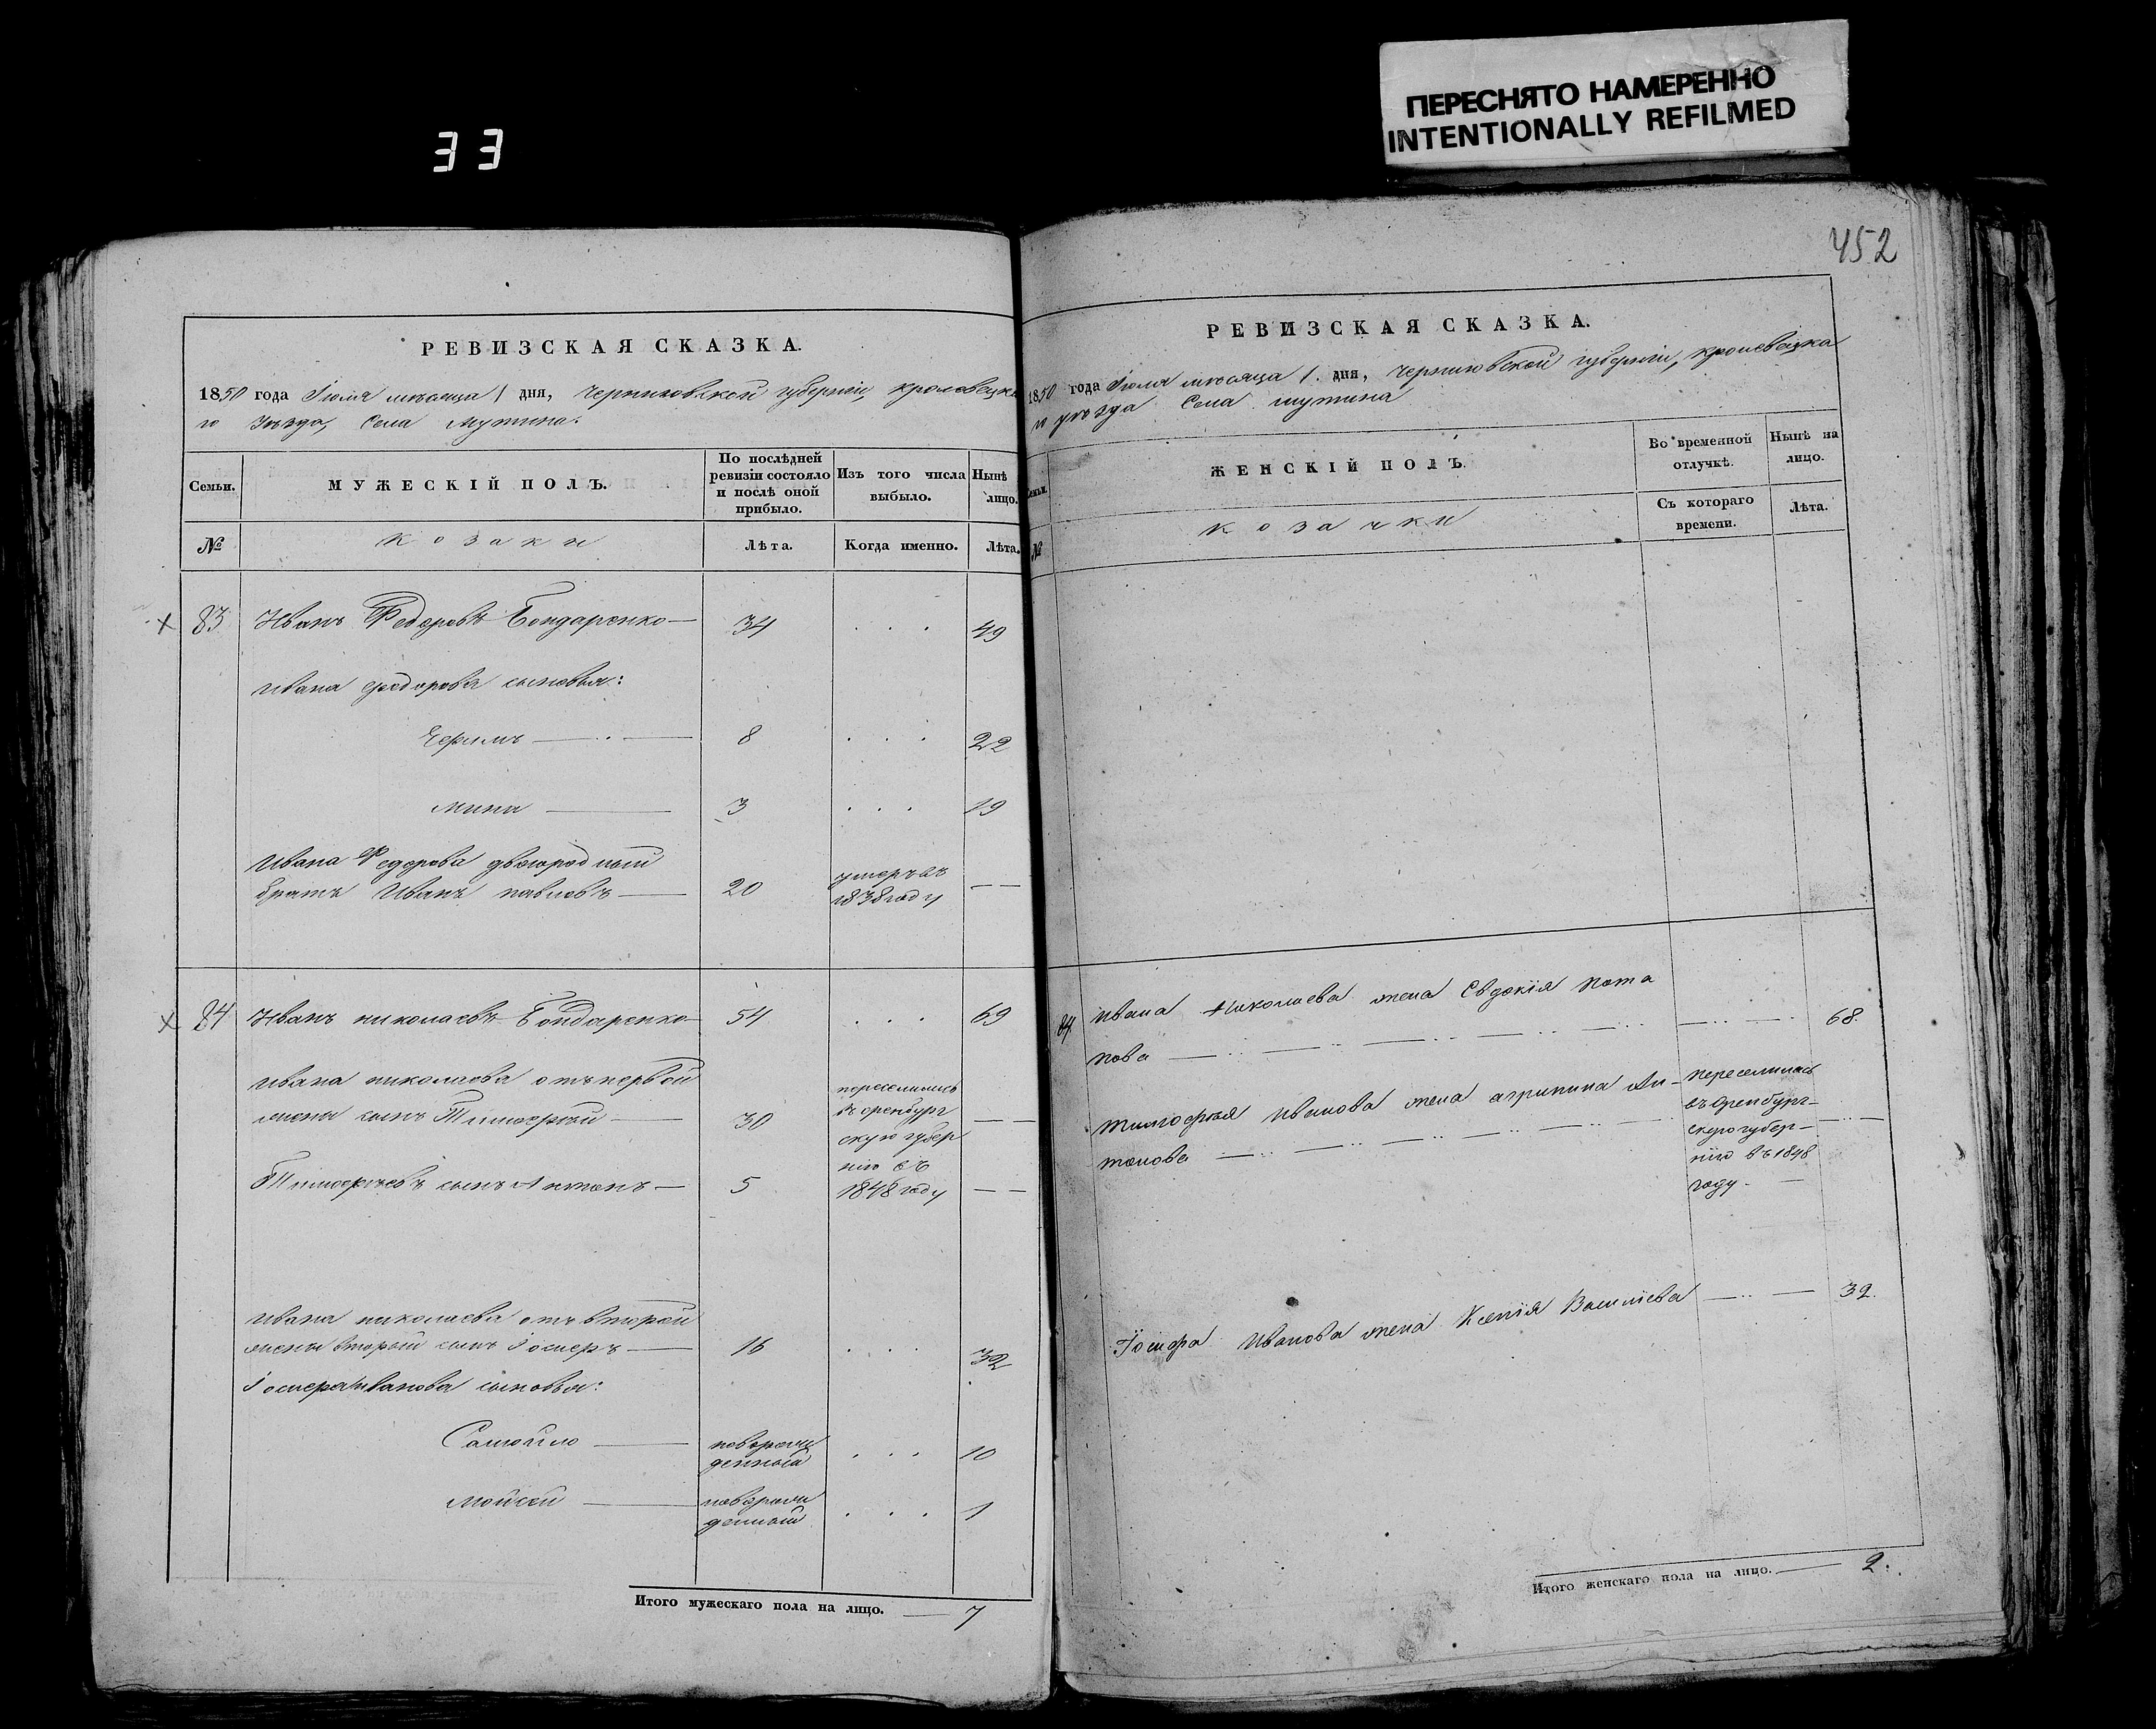 33
ПЕРЕСНЯТО НАМЕРЕННО
INTENTIONALLY REFILMED
452
РЕВИЗСКАЯ СКАЗКА.
1850 года Іюля мѣсяца 1 дня, Черниговской губерніи, кролевецка
го уѣзда, Села мутина.
Семьи.
МУЖЕСКІЙ ПОЛЪ.
По послѣдней
ревизіи состояло
и послѣ оной
прибыло.
Изъ того числа
выбыло.
Нынѣ
лицо.
№
козаки
Лѣта.
Когда именно.
Лѣта.
83 Иванъ Федоровъ Бондаренко — 34 . . . 49
Ивана федорова сыновья:
— 8 . . . 22
— 3 . . . 19
Ивана Федорова двоюродный
братъ Иванъ павловъ — 20 умеръ въ 1838 году — —
84 Иванъ николаевъ Бондаренко 54 . . . 69
Ивана николаева отъ первой
жены сынъ Тимофей — 30 — —
Тимофеевъ сынъ Антонъ — 5 — —
переселились
въ оренбург
скую губер
нію въ
1848 году
Ивана николаева отъ второй
жены вторый сынъ Іосифъ — 16 . . . 32
Іосифа Иванова сыновья:
Самойло — новорож
денный . . . 10
Мойсей — новорож
денный . . . 1
Итого мужескаго пола на лицо. — 7
РЕВИЗСКАЯ СКАЗКА.
1850 года Іюля мѣсяца 1. дня, Черниговской губерніи, кролевецка
го уѣзда Села мутина
Семьи.
ЖЕНСКІЙ ПОЛЪ.
Во временной
отлучкѣ.
Нынѣ на
лицо.
№
козачки
Съ котораго
времени.
Лѣта.
84. Ивана Николаева жена Евдокія Пота
пова — 68.
Тимофея Иванова жена агрипина Ан-
тонова —
переселилась
въ Оренбург-
скую губер-
нію въ 1848
году. —
Іосифа Иванова жена Ксенія Василіева — 32.
Итого женскаго пола на лицо. — 2.